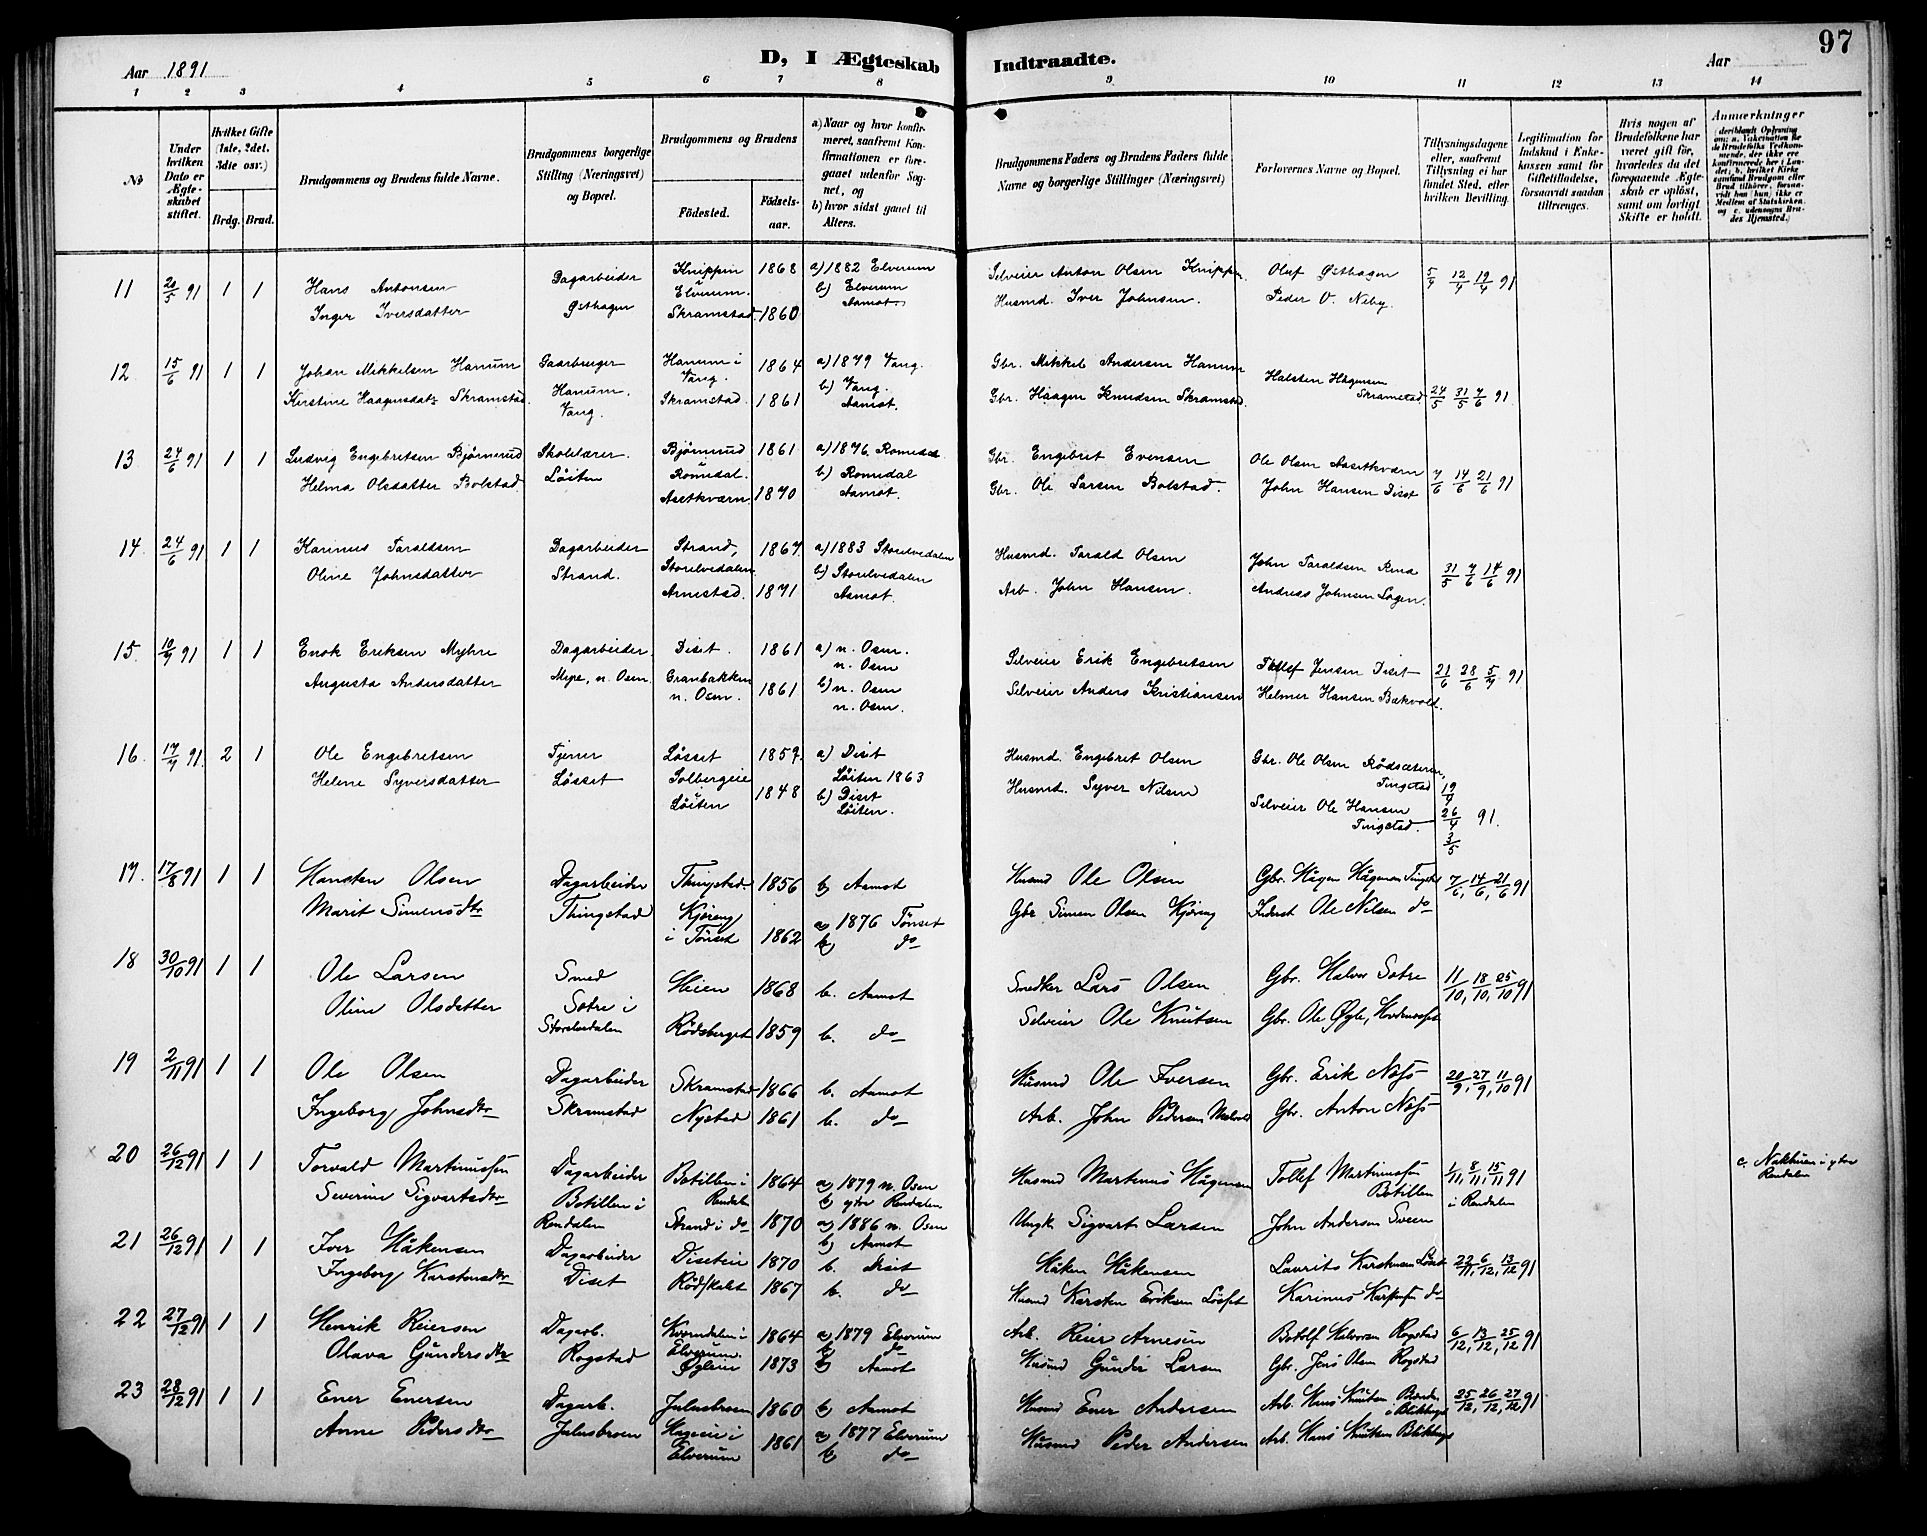 97
Aar 1891
D, I Ægteskab Indtraadte.
Aar
1 2 3 4 5 6 7 8 9. 10 11 12 13 14
No
Under hvilken Dato er Ægteskabet stiftet.
Hvilket Gifte (1ste, 2det, 3die osv.)
Brdg. Brud.
Brudgommens og Brudens fulde Navne.
Brudgommens borgerlige Stilling (Næringsvei) og Bopæl.
Brudgommens og Brudens
Födested.
Födselsaar.
a) Naar og hvor konfirmeret, saafremt Konfirmationen er foregaaet udenfor Sognet, og
b) hvor sidst gaaet til Alters.
Brudgommens Faders og Brudens Faders fulde Navne og borgerlige Stillinger (Næringsvei)
Forlovernes Navne og Bopæl.
Tillysningsdagene eller, saafremt Tillysning ei har fundet Sted, efter hvilken Bevilling.
Legitimation for Indskud i Enkekassen samt for Giftetilladelse, forsaavidt saadan tiltrænges.
Hvis nogen af Brudefolkene har været gift før, hvorledes da det foregaaende Ægteskab er oplöst, samt om lovligt Skifte er holdt.
Anmærkninger
11 20/5 91 1 1 Hans Antonsen Dagarbeider Knippin i Elverum. 1868 a) 1882 Elverum b) Elverum Selveier Anton Olsen Knippen Oluf Østhagen 5/4 12/4 19/4 91
Inger Iversdatter Østhagen Skramstad 1860 Aamot Husmd. Iver Johnsen. Peder O. Neby.
12 15/6 91 1 1 Johan Mikkelsen Hanum Gaarbruger Hanum i Vang. 1864 a) 1879 Vang. b) Vang. Gbr. Mikkel Andersen Hanum Halsten Hågensen Skramstad 24/5 31/5 7/6 91
Kerstine Haagensdatr Skramstad. Hanum, Vang. Skramstad. 1861 Aamot. Gbr. Haagen Knudsen Skramstad.
13 24/6 91 1 1 Ludvig Engebretsen Bjørnerud Skolelærer. Bjørnerud i Romedal. 1861 a) 1876 Romedal b) Romedal Gbr. Engebret Evensen Ole Olsen Aasetkværn 7/6 14/6 21/6 91
Helma Olsdatter Bolstad. Løiten Asetkværn 1870 Aamot. Gbr. Ole Larsen Bolstad. John Hansen Diset
14. 24/6 91 1 1 Karinus Taraldsen Dagarbeider Strand, Storelvedalen 1867. a) 1883 Storelvedalen b) Storelvedalen Husmd. Tarald Olsen John Taraldsen 31/5 7/6 14/6 91
Oline Johnsdatter Strand. Arnestad. 1871 Aamot. Arb. John Hansen. Andreas Johnsen Løgen.
15. 10/7 91 1 1 Enok Eriksen Myhre Dagarbeider Diset. 1861 a) n. Osen. n. Osen Selveier Erik Engebretsen Jensen Diset 21/6 28/6 5/7 91
Augusta Andersdatter n. Osen. Granbakken n. Osen. 1861 b) n. Osen n. Osen. Selveier Anders Kristiansen Helmer Hansen Bækvold.
16. 17/7 91. 2 1 Ole Engebretsen Tjener Løsset 1857. a) Diset Løiten 1863 Husmd. Engebret Olsen Gbr. Ole Olsen Rødsæteren, Tingstad 19/4
Helene Syversdatter Løsset Solbergeie Løiten 1848 b) Diset Løiten. Husmd. Syver Nilsen Selveier Ole Hansen Tingstad. 26/4 91. 3/5
17. 17/8 91 1 1 Hansten Olsen Dagarbeider Thingstad 1856 b) Aamot Husmd Ole Olsen Gbr. Hågen Hågensen Tingstd 7/6, 14/6, 21/6 91
Marit Simensdtr Thingstad Kjøreng i Tønset 1862 a) 1876 Tønset b) do Gbr Simen Olsen Kjøreng Inderst Ole Nilsen do
18 30/10 91 1 1 Ole Larsen Smed Heien 1868 b. Aamot Snedker Lars Olsen Gbr. Halvor Sætre 11/10, 18/10, 25/10 91
Oline Olsdatter Sætre i Storelvdalen Rödsberget 1859 b. do Selveier Ole Knutsen Gbr. Ole Øgle,
19 2/11 91 1 1 Ole Olsen Dagarbeider Skramstad 1866 b. Aamot Husmd Ole Iversen Gbr. Erik Næss 20/9, 27/9, 11/10 91
Ingeborg Johnsdtr Skramstad Nystad 1861 b. do Arb. John Pedersen Gbr. Anton Næss
x 20 26/12 91 1 1 Torvald Martinussen Dagarbeider Botillen i Rendalen 1864 a) 1879 n. Osen b) ytre Rendalen Husmd Martinus Hågensen Tollef Martinussen Botillen i Rendalen 1/11, 8/11, 15/11 91 c. Nakkuen i ytre Rendalen
Severine Sigvartsdtr Botillen i Rendalen Strand i do 1870 a) 1886 n. Osen b) Aamot Ungk. Sigvart Larsen John Anderson Sveen
21 26/12 91 1 1 Iver Håkensen Dagarbeider Diseteie 1870 b. Diset Håken Håkensen Laurits Karstensen Løset 22/11, 6/12, 13/12 91
Ingeborg Karstensdtr Diset Rödskalet 1867 b. do Husmd Karsten Eriksen Løset Karinus Karstensen do
22 27/12 91 1 1 Henrik Reiersen Dagarb. Kverndalen i Elverum. 1864 a) 1879 Elverum b) do Arb. Reier Arnesen Botolf Halvorsen Rogstad 6/12, 13/12, 25/12 91
Olava Gundersdtr Rogstad Ögleeie 1873 b) Aamot Husmd Gunder Larsen Gbr. Jens Olsen Rogstad
23 28/12 91 1 1 Ener Enersen Dagarb. Julusbroen 1860 b) Aamot Husmd Ener Andersen Arb. Hans Knutsen 25/12, 26/12, 27/12 91
Anne Pedersdtr Julusbroen Hageeie i Elverum 1861 a) 1877 Elverum b) do Husmd Peder Andersen Arb. Hans Knutsen